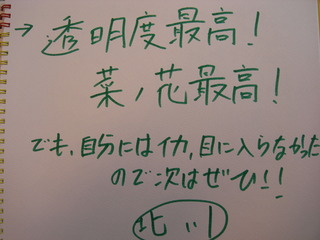 →透明度最高!
菜ノ花最高!
でも、自分にはイカ、目に入らなかった
ので次はぜひ!!